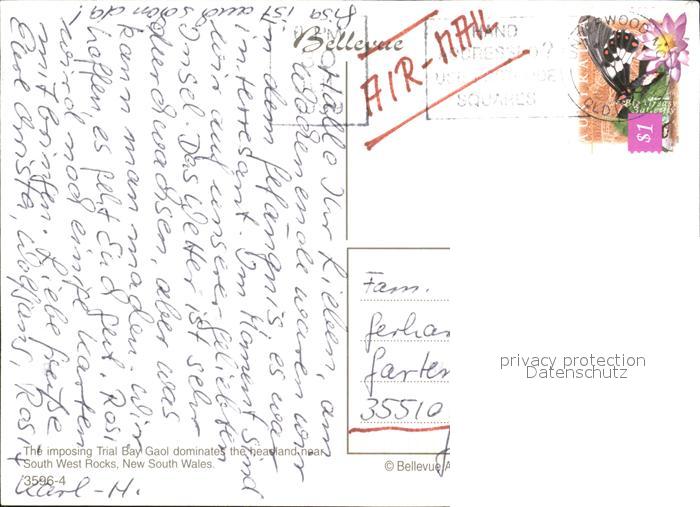 Hallo Ihr Lieben, am
Wochenende waren wir
in dem Gefängnis es war
interessant. Im Moment sind
wir auf unserer geliebten
Insel. Das Wetter ist sehr
durchwachsen, aber was
kann man machen. Wir
hoffen, es geht Euch gut. Rosi
wird noch einige Karten
mitbringen. Liebe Grüße
Eure Christa, Wolfgang, Rosi +
Karl-H.
Lisa ist auch schon da!
Bellevue
AIR-MAIL
SQUARES
QLD
$1
Fam.
Gerhar
Garten
35510
privacy protection
Datenschutz
The imposing Trial Bay Gaol dominates the headland near
South West Rocks, New South Wales.
3596-4
© Bellevue A